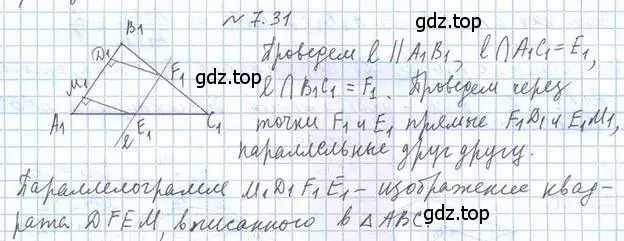 № 7.31
B₁
D₁
M₁
F₁
A₁
E₁
C₁
ℓ
Проведем ℓ || A₁B₁, ℓ∩A₁C₁=E₁,
ℓ∩B₁C₁=F₁. Проведем через
точки F₁ и E₁ прямые F₁D₁ и E₁M₁,
параллельные друг другу.
Параллелограмм M₁D₁F₁E₁ – изображение квад-
рата DFEM, вписанного в △ABC.
gdz.top
gdz.top
gdz.top
gdz.top
gdz.top